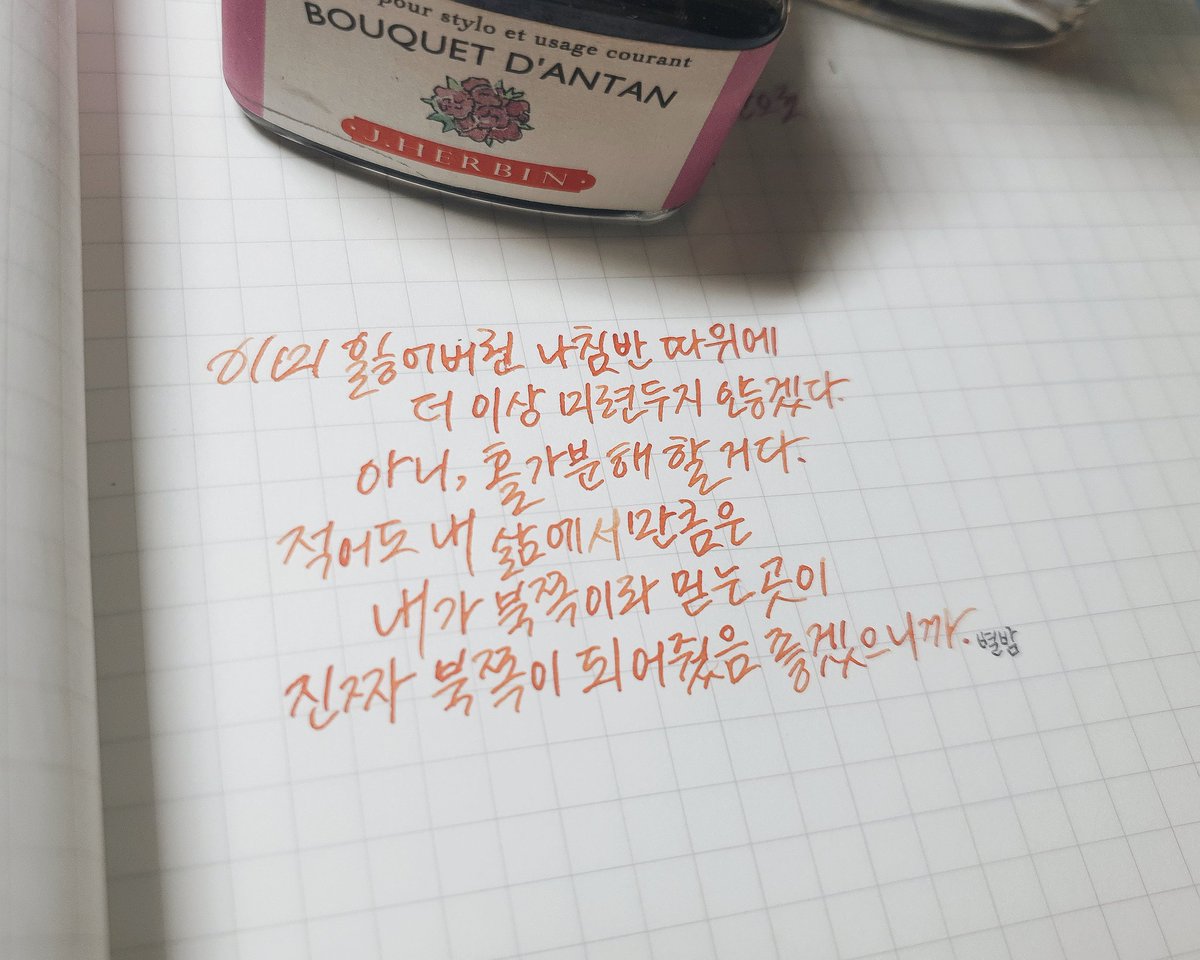 pour stylo et usage courant
BOUQUET D'ANTAN
J. HERBIN
이미 잃어버린 나침반 따위에
더 이상 미련두지 않겠다.
아니, 홀가분해 할 거다.
적어도 내 삶에서만큼은
내가 북쪽이라 믿는 곳이
진짜 북쪽이 되어줬음 좋겠으니까. 별밤